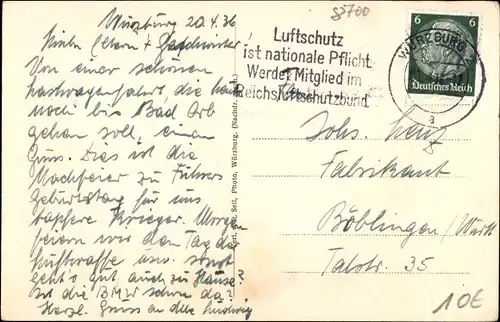 Würzburg 20.4.36
Liebe Eltern + Geschwister
Von einer schönen
Lastwagenfahrt, die heute
noch bis Bad Orb
gehen soll, einen
Gruss. Dies ist die
Nachfeier zu Führers
Geburtstag für uns
tapfere Krieger. Morgen
feiern wir den Tag der
Luftwaffe usw. sonst
geht's gut, auch zu Hause?
Ist die BMW schon da?
Herzl. Gruss an alle
Luftschutz
ist nationale Pflicht
Werdet Mitglied im
Reichsluftschutzbund
WÜRZBURG
a
6 6
Deutsches Reich
83700
Fabrikant
Böblingen/Württ
Talstr. 35
10€